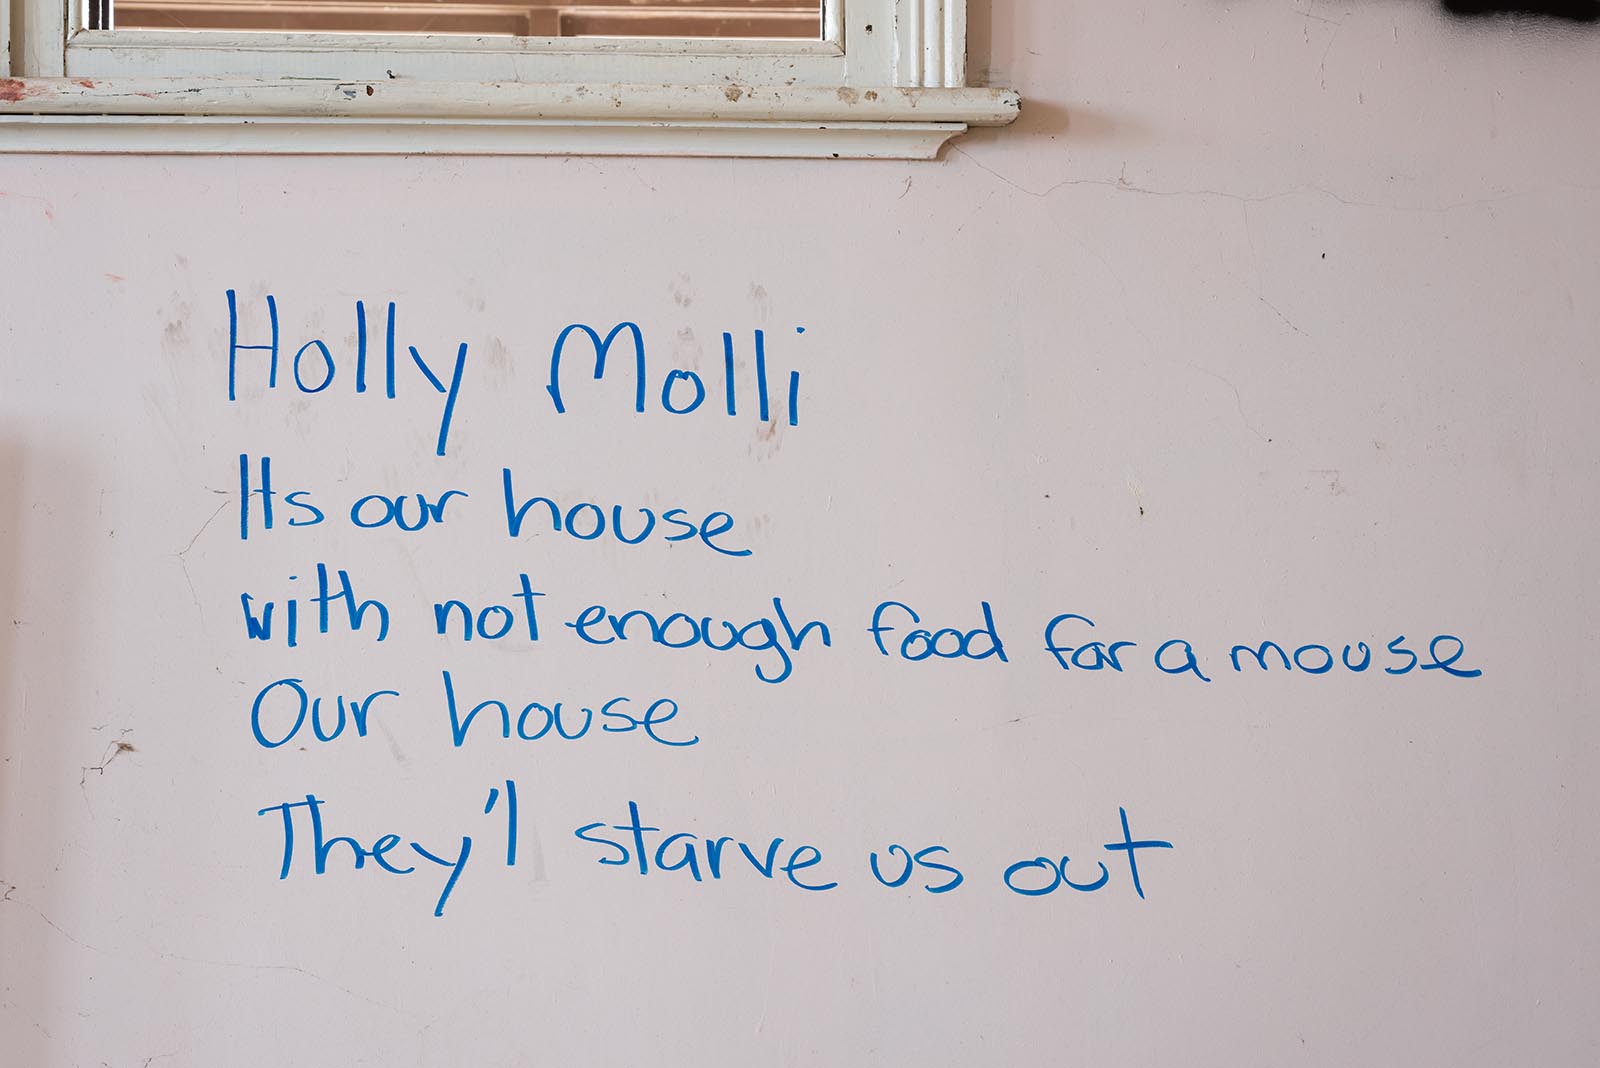 Holly Molli
Its our house
with not enough food for a mouse
Our house
They'l starve us out